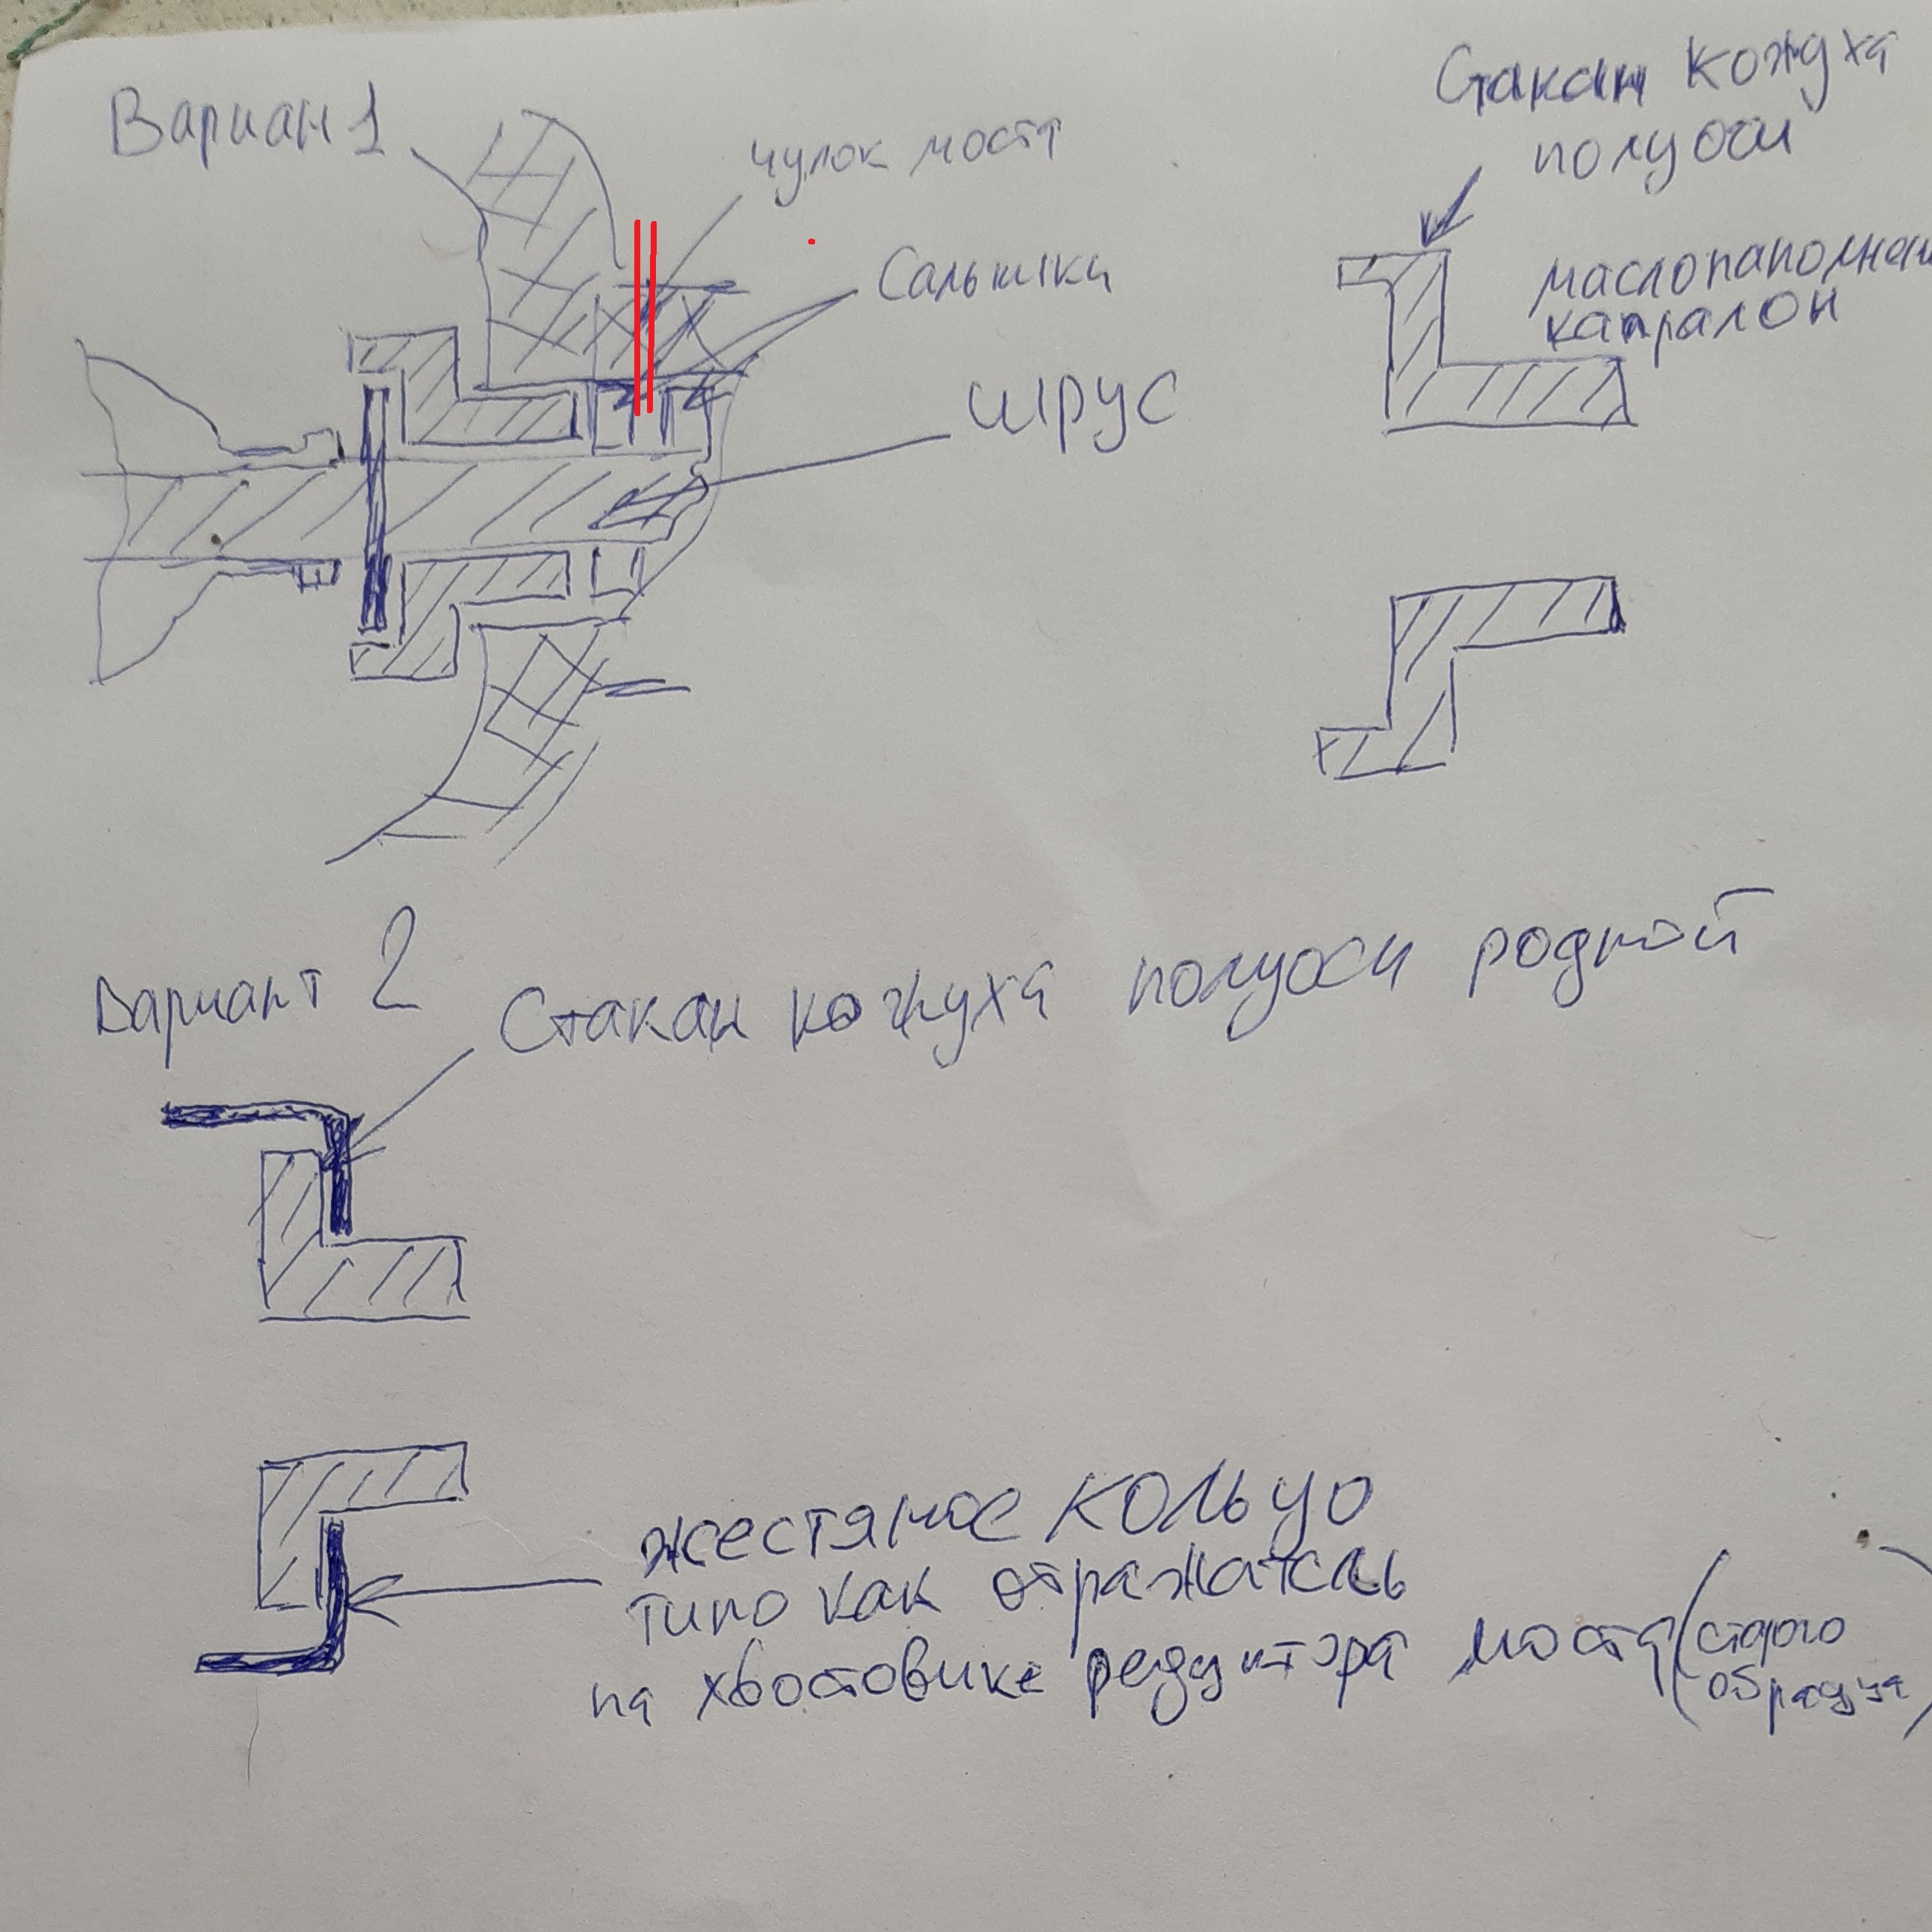 Вариан 1
чулок моста
Сальники
шрус
Стакан кожуха
полуоси
маслонаполнен
капралон
Вариант 2
Стакан кожуха полуоси родной
жестяное кольцо
типо как отражатель
на хвостовике редуктора моста (старого
образца)